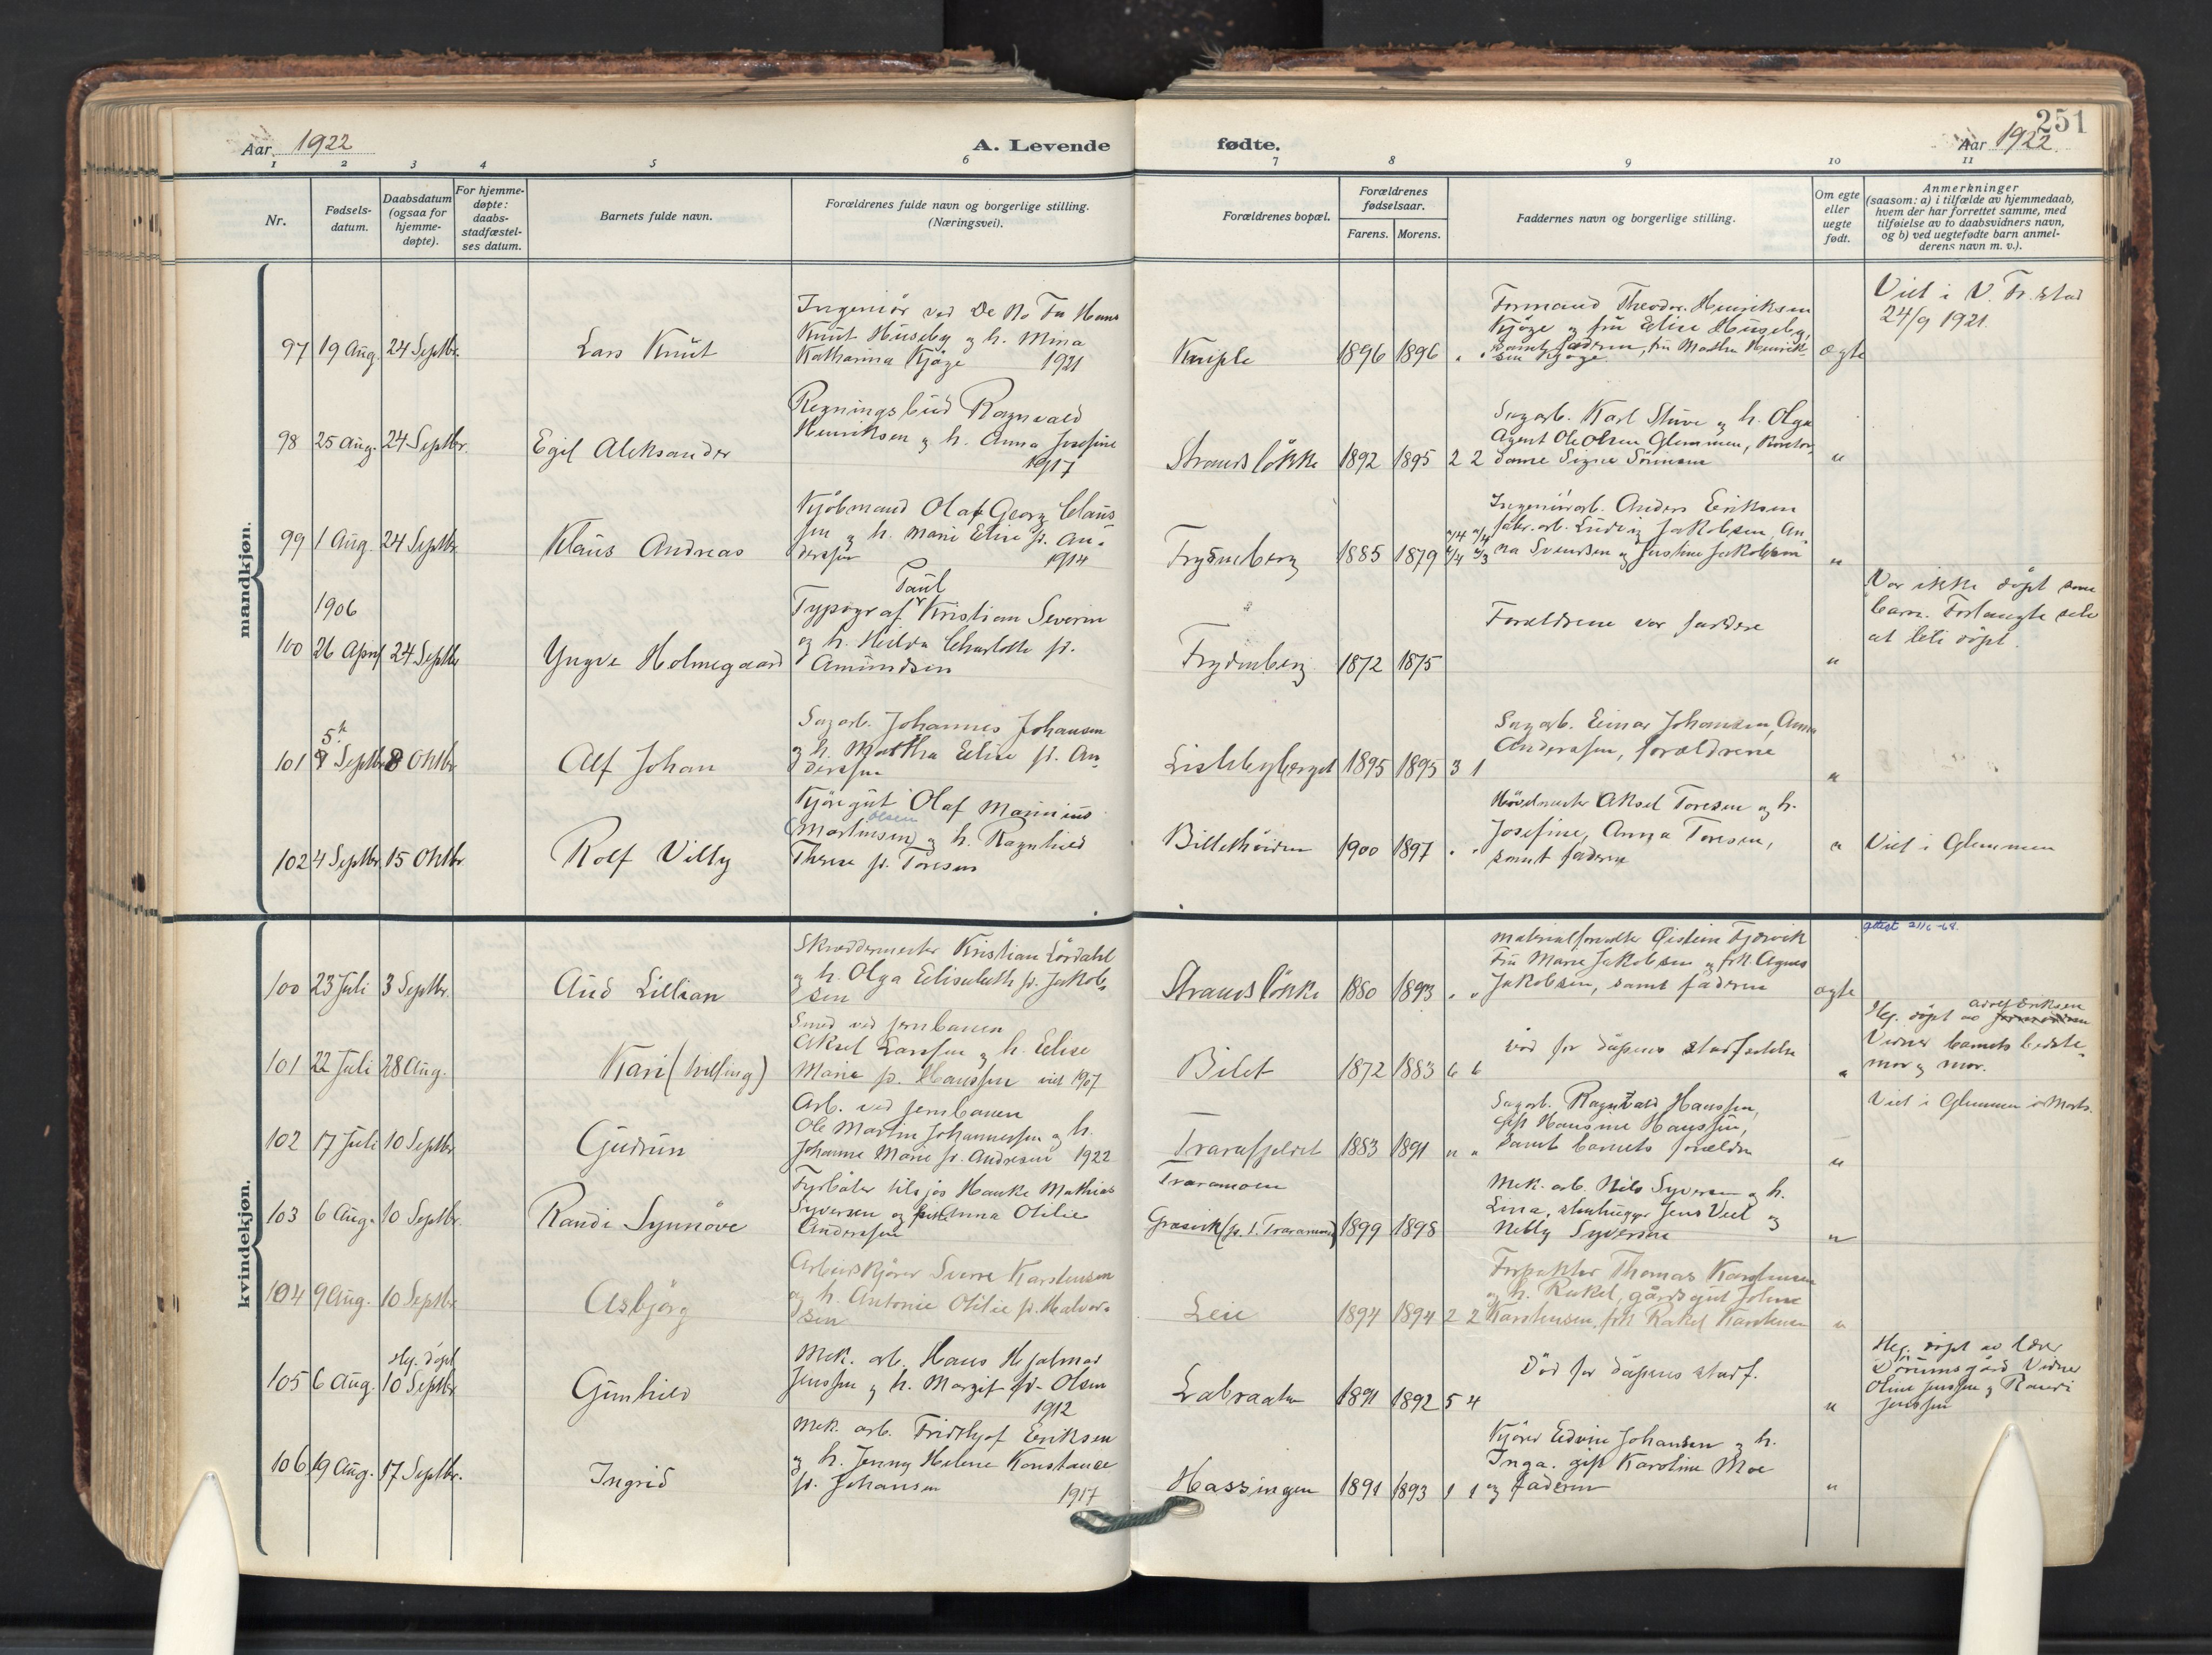 251
Aar 1922
A. Levende
fødte.
Aar 1922
1 2 3 4 5 6 7 8 9 10 11
Nr.
Fødsels-
datum.
Daabsdatum
(ogsaa for
hjemme-
døpte).
For hjemme-
døpte:
daabs-
stadfæstel-
ses datum.
Barnets fulde navn.
Forældrenes fulde navn og borgerlige stilling.
(Næringsvei).
Forældrenes bopæl.
Forældrenes
fødselsaar.
Farens. Morens.
Faddernes navn og borgerlige stilling.
Om egte
eller
uegte
født.
Anmerkninger
(saasom: a) i tilfælde av hjemmedaab,
hvem der har forrettet samme, med
tilføielse av to daabsvidners navn,
og b) ved uegtefødte barn anmel-
derens navn m. v.).
mandkjøn.
97 19 Aug. 24 Septbr.
Lars Knut
Ingeniör ved De No Fa Hans
Knut Huseby og h. Mina
Katharina Kjöge 1921
Kniple 1896 1896
Formand Theodor Henriksen
Kjöge og fru Elise Huseby,
samt faderen, fru Martha Henrik-
sen Kjöge
ægte
Viet i V. Fr.stad
24/9 1921.
98 25 Aug. 24 Septbr.
Egil Aleksander
Regningsbud Ragnvald
Henriksen og h. Anna Josefine
1917
Strandslökka 1892 1895 2 2
Sagarb. Karl Stuve og h. Olga
Agent Ole Olsen Glemmen,
dame Signe Sörensen
"
99 1 Aug. 24 Septbr.
Klaus Andreas
Kjöbmand Olaf Georg Claus
sen og h. Marie Elise f. An-
derssen 1914
Frydenberg 1885 1879
Ingeniörarb. Anders Eriksen
fabr.arb. Ludvig Jakobsen, An-
na Svendsen og Justine Jakobsen
"
1906
100 26 April 24 Septbr
Yngve Holmegaard
Paul
Typograf Kristian Severin
og h. Hilda Charlotte f.
Amundsen
Frydenberg 1872 1875
Forældrene var faddere
"
Var ikke döpt som
barn. Forlangte selv
at bli döpt.
5
101 Septbr 8 Oktbr
Alf Johan
Sagarb. Johannes Johansen
og h. Martha Elise f. An-
derssen
Lislebyberget 1895 1895 3 1
Sagarb. Einar Johansen, Anna
Anderssen, forældrene
"
102 4 Septbr. 15 Oktbr
Rolf Villy
Kjöregut Olaf Marinius
Olsen
(Martinsen) og h. Ragnhild
Therese f. Toresen
Billethöiden 1900 1897
Hövelmester Aksel Toresen og h.
Josefine, Anna Toresen,
samt faderen
"
Viet i Glemmen
kvindekjøn.
100 23 Juli 3 Septbr.
Aud Lillian
Skreddermester Kristian Lördahl
og h. Olga Elisabeth f. Jakob-
sen
Strandslökka 1880 1893
Materialforvalter Öistein Fjærvik
Fru Marie Jakobsen og frk. Agnes
Jakobsen, samt faderen
ægte
101 22 Juli 28 Aug.
Kari (tvilling)
Smed ved jernbanen
Aksel Larssen og h. Elise
Marie f. Hanssen viet 1907
Bilet 1872 1883 6 6
död för dåpens stadfestelse
"
Hj. döpt av
Adolf Eriksen
Vidner barnets bedste-
mor og mor.
102 17 Juli 10 Septbr
Gudrun
Arb. ved jernbanen
Ole Martin Johannessen og h.
Johanne Marie f. Andresen 1922
Trarafjeldet 1883 1891 " "
Sagarb. Ragnvald Hanssen,
gift Hansine Hanssen,
samt barnets forældre
"
Viet i Glemmen i Marts.
103 6 Aug. 10 Septbr.
Randi Synnöve
Fyrböter tilsjös Hauke Mathias
Syversen og Anna Otilie
Anderssen
Traramoen
Græsvik (p. t. Traramoen) 1899 1898
Mek. arb. Nils Syversen og h.
Lina, stenhugger Jens Viel og
Nelly Syversen
"
104 9 Aug. 10 Septbr
Asbjörg
Arbeidskjörer Sverre Karstensen
og h. Antonie Otilie f. Halvor-
sen
Leie 1894 1894 2 2
Forpakter Thomas Karstensen
og h. Rakel, gårdsgut Johne
Karstensen, frk Rakel Karstensen
"
Hj. döpt
105 6 Aug. 10 Septbr
Gunhild
Mek. arb. Hans Hjalmar
Jenssen og h. Margit f. Olsen
1912
Labraaten 1891 1892 5 4
Död för dåpens stadf.
"
Hj. döpt av lærer
Dörumsgård Vidner
Oline Jenssen og Randi
Jenssen
106 19 Aug. 17 Septbr.
Ingrid
Mek. arb. Fridthjof Eriksen
og h. Jenny Helene Konstance
f. Johansen 1917
Hassingen 1891 1893 1 1
Kjörer Edvin Johansen og h.
Inga. gift Karoline Moe
og faderen
"